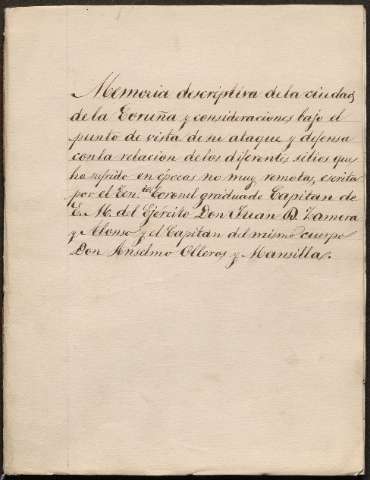 Memoria descriptiva de la ciudad
de la Coruña y consideraciones bajo el
punto de vista de su ataque y defensa
con la relacion de los diferentes sitios que
ha sufrido en épocas no muy remotas, escrita
por el Ten.te Coronel graduado Capitan de
E. M. del Ejército Don Juan D. Zamora
y Alonso y el Capitan del mismo cuerpo
Don Anselmo Olleros y Mansilla.